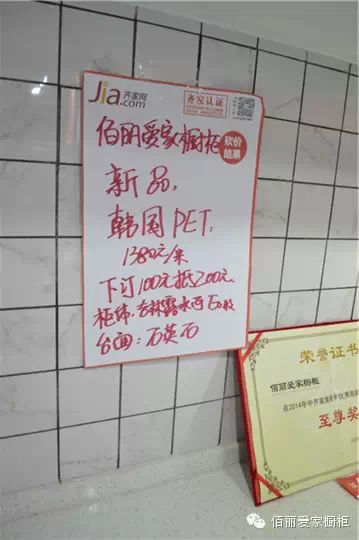 Jia.com 齐家网
齐家认证
佰丽爱家橱柜 砍价结果
新品:
韩国PET:
1380元/米
下订100元抵200元
柜体:吉林露水河E0板
台面:石英石
荣誉证书
佰丽爱家橱柜
至尊奖
佰丽爱家橱柜